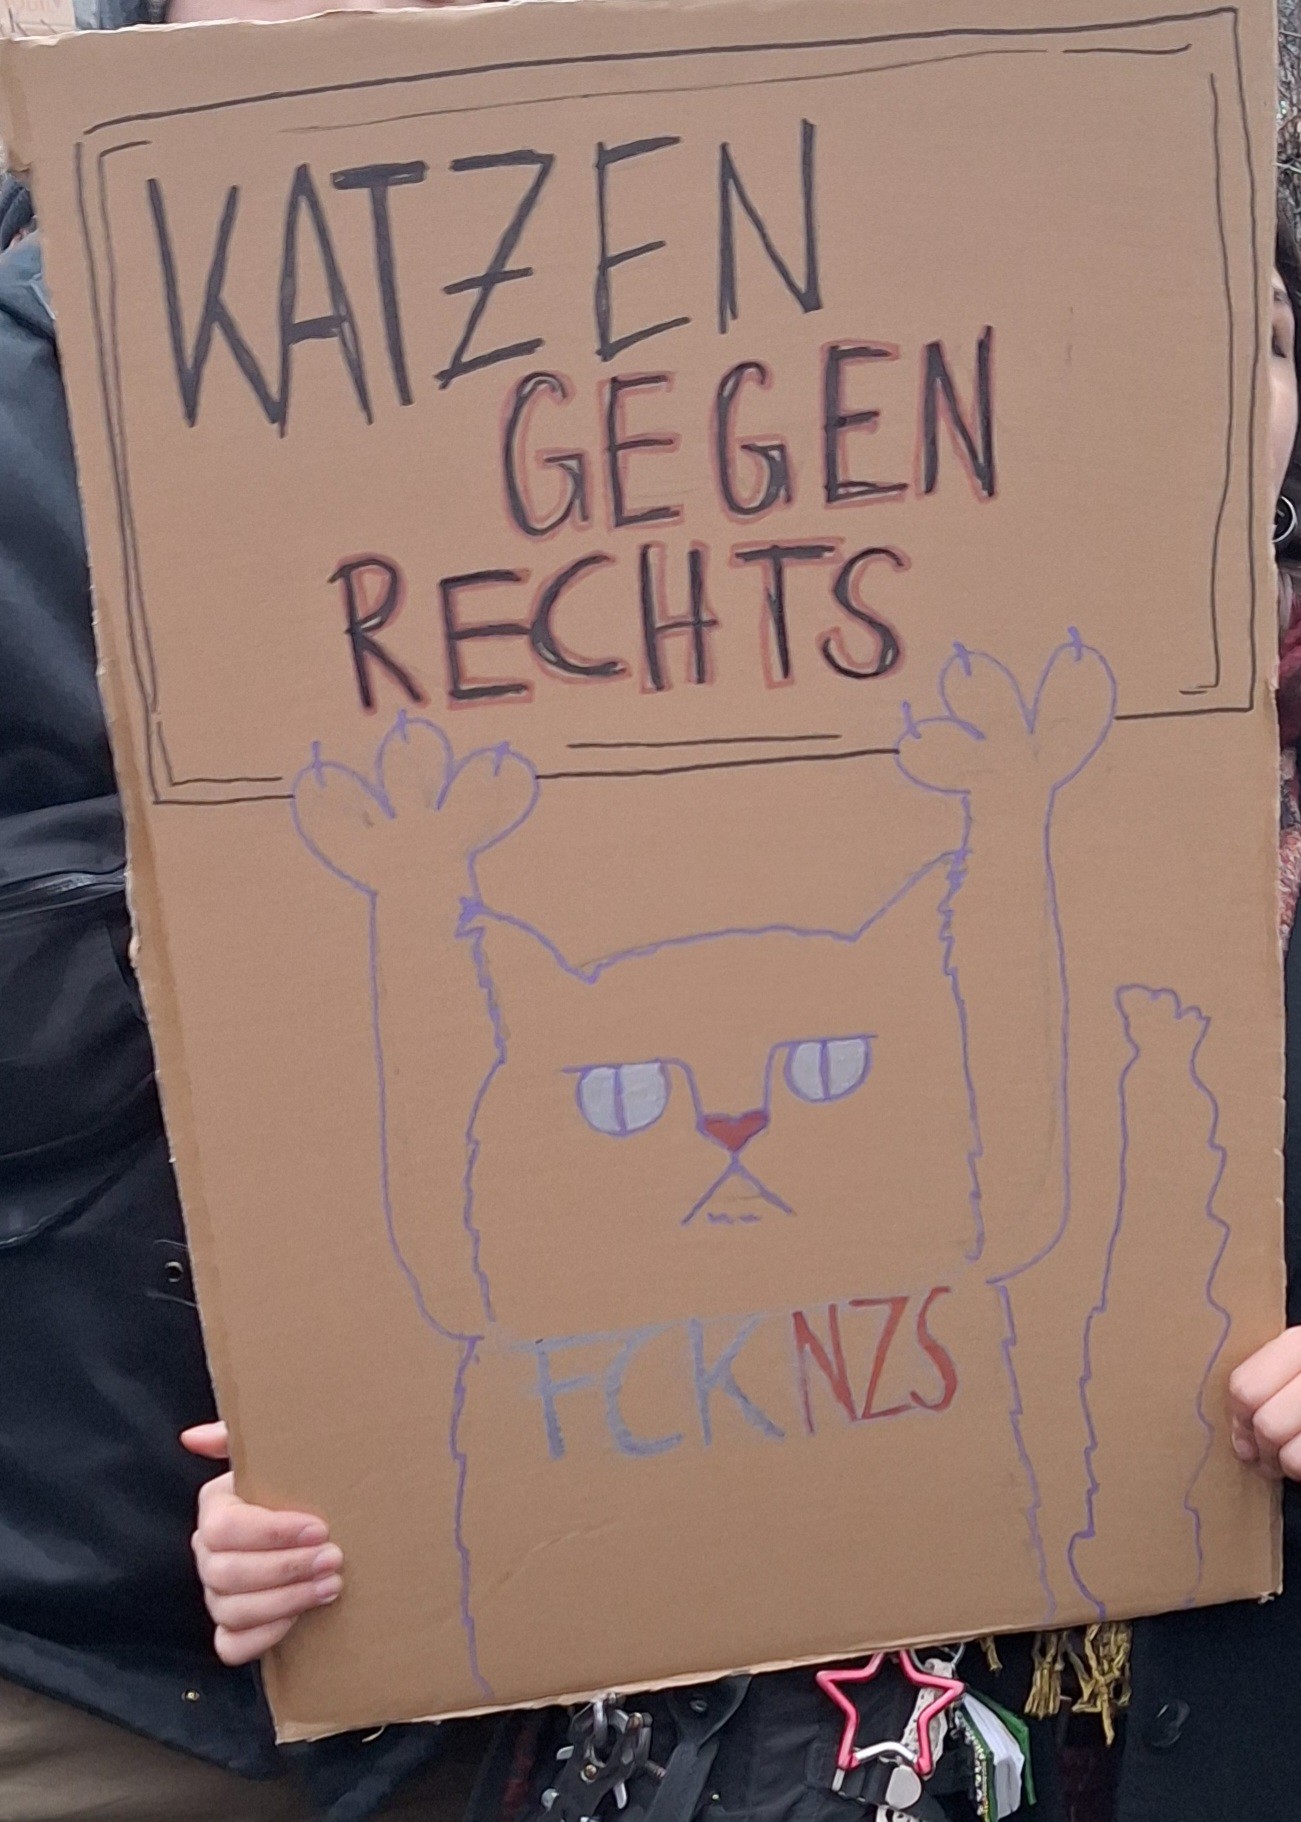 KATZEN
GEGEN
RECHTS
FCKNZS